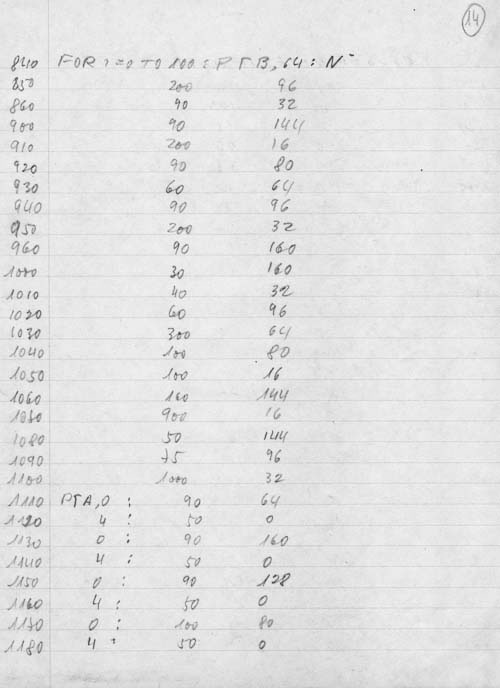 14
840 FOR I=0 TO 100 : P T B, 64 : N
850 200 96
860 90 32
900 90 144
910 200 16
920 90 80
930 60 64
940 90 96
950 200 32
960 90 160
1000 30 160
1010 40 32
1020 60 96
1030 300 64
1040 100 80
1050 100 16
1060 160 144
1070 900 16
1080 50 144
1090 75 96
1100 1000 32
1110 PTA,0 : 90 64
1120 4 : 50 0
1130 0 : 90 160
1140 4 : 50 0
1150 0 : 90 128
1160 4 : 50 0
1170 0 : 100 80
1180 4 : 50 0